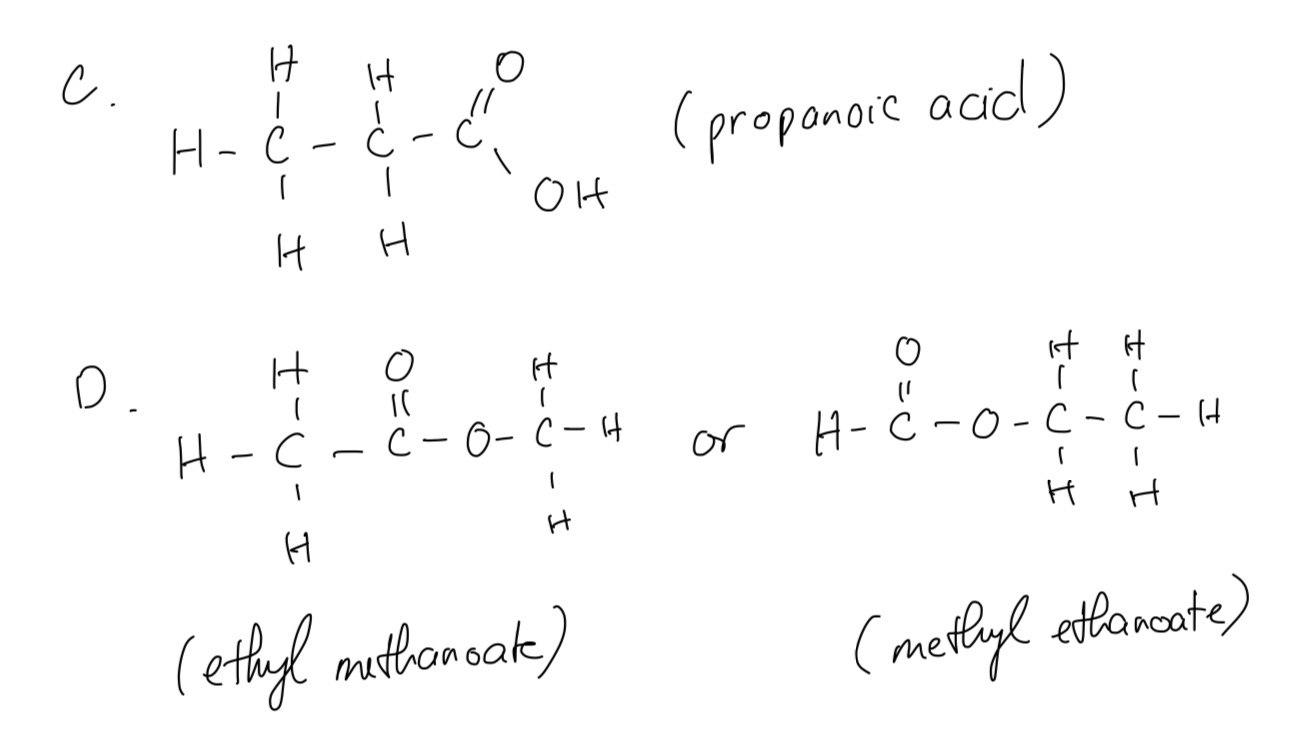 H H O
C.
H - C - C - C (propanoic acid)
OH
H H
H O H O H H
D.
H - C - C - O - C - H or H - C - O - C - C - H
H H H H
(ethyl methanoate) (methyl ethanoate)